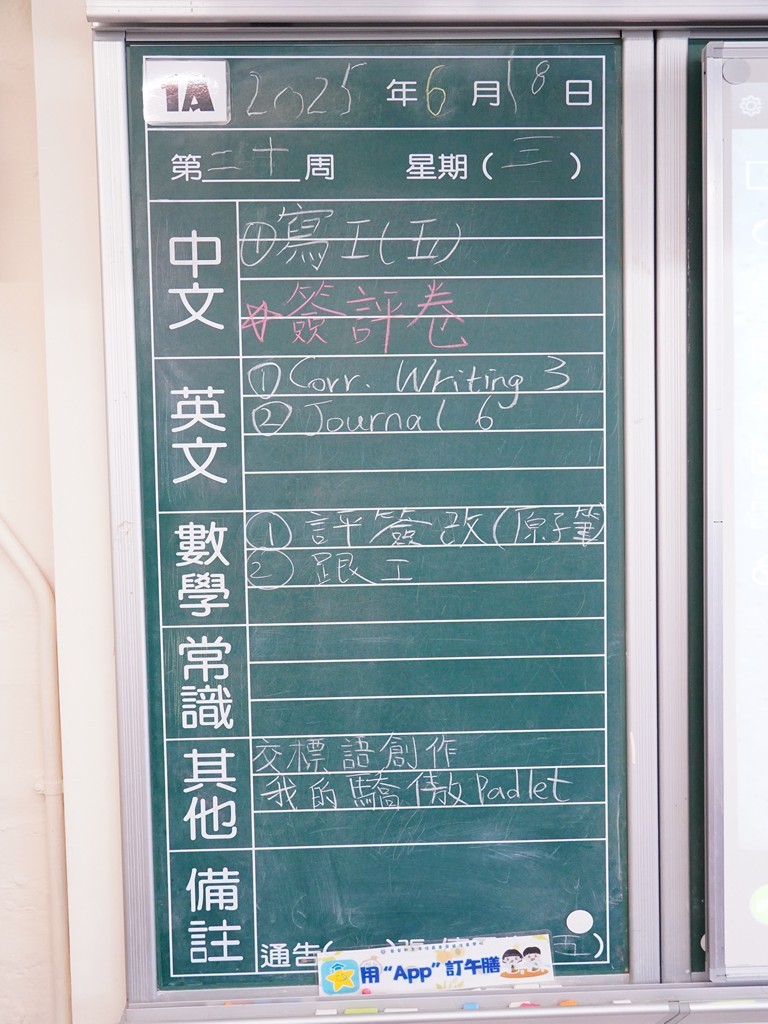 1A 2025 年 6 月 18 日
第 二十 周 星期 ( 三 )
中文
① 寫工(五)
☆ 簽評卷
英文
① Corr. Writing 3
② Journal 6
數學
① 評簽改(原子筆)
② 跟工
常識
其他
交標語創作
我的驕傲 Padlet
備註
通告( 五 )
用 “App” 訂午膳